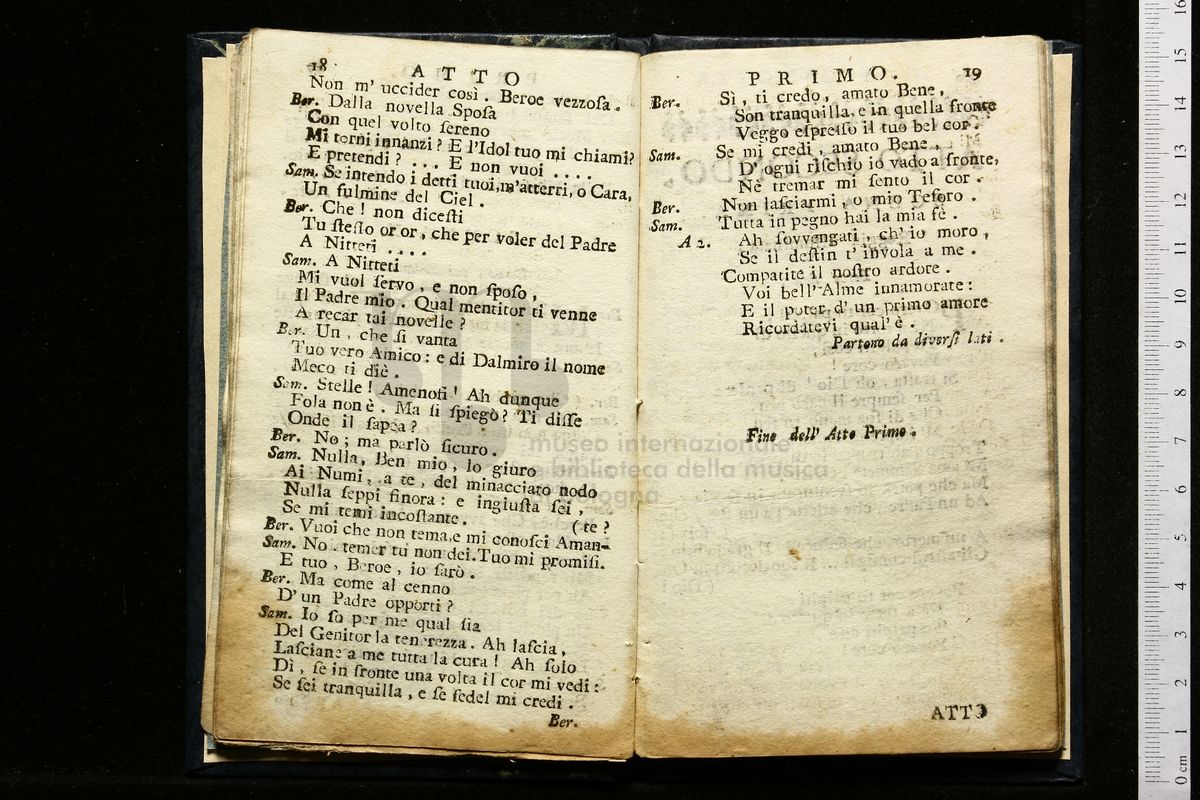 18 ATTO
Non m' uccider così. Beroe vezzosa.
Ber. Dalla novella Sposa
Con quel volto sereno
Mi torni innanzi? E l'Idol tuo mi chiami?
E pretendi? ... E non vuoi ....
Sam. Se intendo i detti tuoi, m'atterri, o Cara,
Un fulmine del Ciel.
Ber. Che! non dicesti
Tu stesso or or, che per voler del Padre
A Nitteti ....
Sam. A Nitteti
Mi vuol servo, e non sposo,
Il Padre mio. Qual mentitor ti venne
A recar tai novelle?
Ber. Un, che si vanta
Tuo vero Amico: e di Dalmiro il nome
Meco ti diè.
Sam. Stelle! Amenofi! Ah dunque
Fola non è. Ma si spiegò? Ti disse
Onde il sapea?
Ber. No; ma parlò sicuro.
Sam. Nulla, Ben mio, lo giuro
Ai Numi, a te, del minacciato nodo
Nulla seppi finora: e ingiusta sei,
Se mi temi incostante. (te?
Ber. Vuoi che non tema, e mi conosci Aman-
Sam. No. temer tu non dei. Tuo mi promisi.
E tuo, Beroe, io sarò.
Ber. Ma come al cenno
D'un Padre opporti?
Sam. Io so per me qual sia
Del Genitor la tenerezza. Ah lascia,
Lasciane a me tutta la cura! Ah solo
Dì, se in fronte una volta il cor mi vedi:
Se sei tranquilla, e se fedel mi credi.
Ber.
PRIMO. 19
Ber. Sì, ti credo, amato Bene,
Son tranquilla, e in quella fronte
Veggo espresso il tuo bel cor.
Sam. Se mi credi, amato Bene,
D'ogni rischio io vado a fronte,
Nè tremar mi sento il cor.
Ber. Non lasciarmi, o mio Tesoro.
Sam. Tutta in pegno hai la mia fè.
A 2. Ah sovvengati, ch'io moro,
Se il destin t'invola a me.
Compatite il nostro ardore.
Voi bell'Alme innamorate:
E il poter d'un primo amore
Ricordatevi qual'è.
Partono da diversi lati.
Fine dell' Atto Primo.
ATTO
museo internazionale
biblioteca della musica
di bologna
0 cm 1 2 3 4 5 6 7 8 9 10 11 12 13 14 15 16